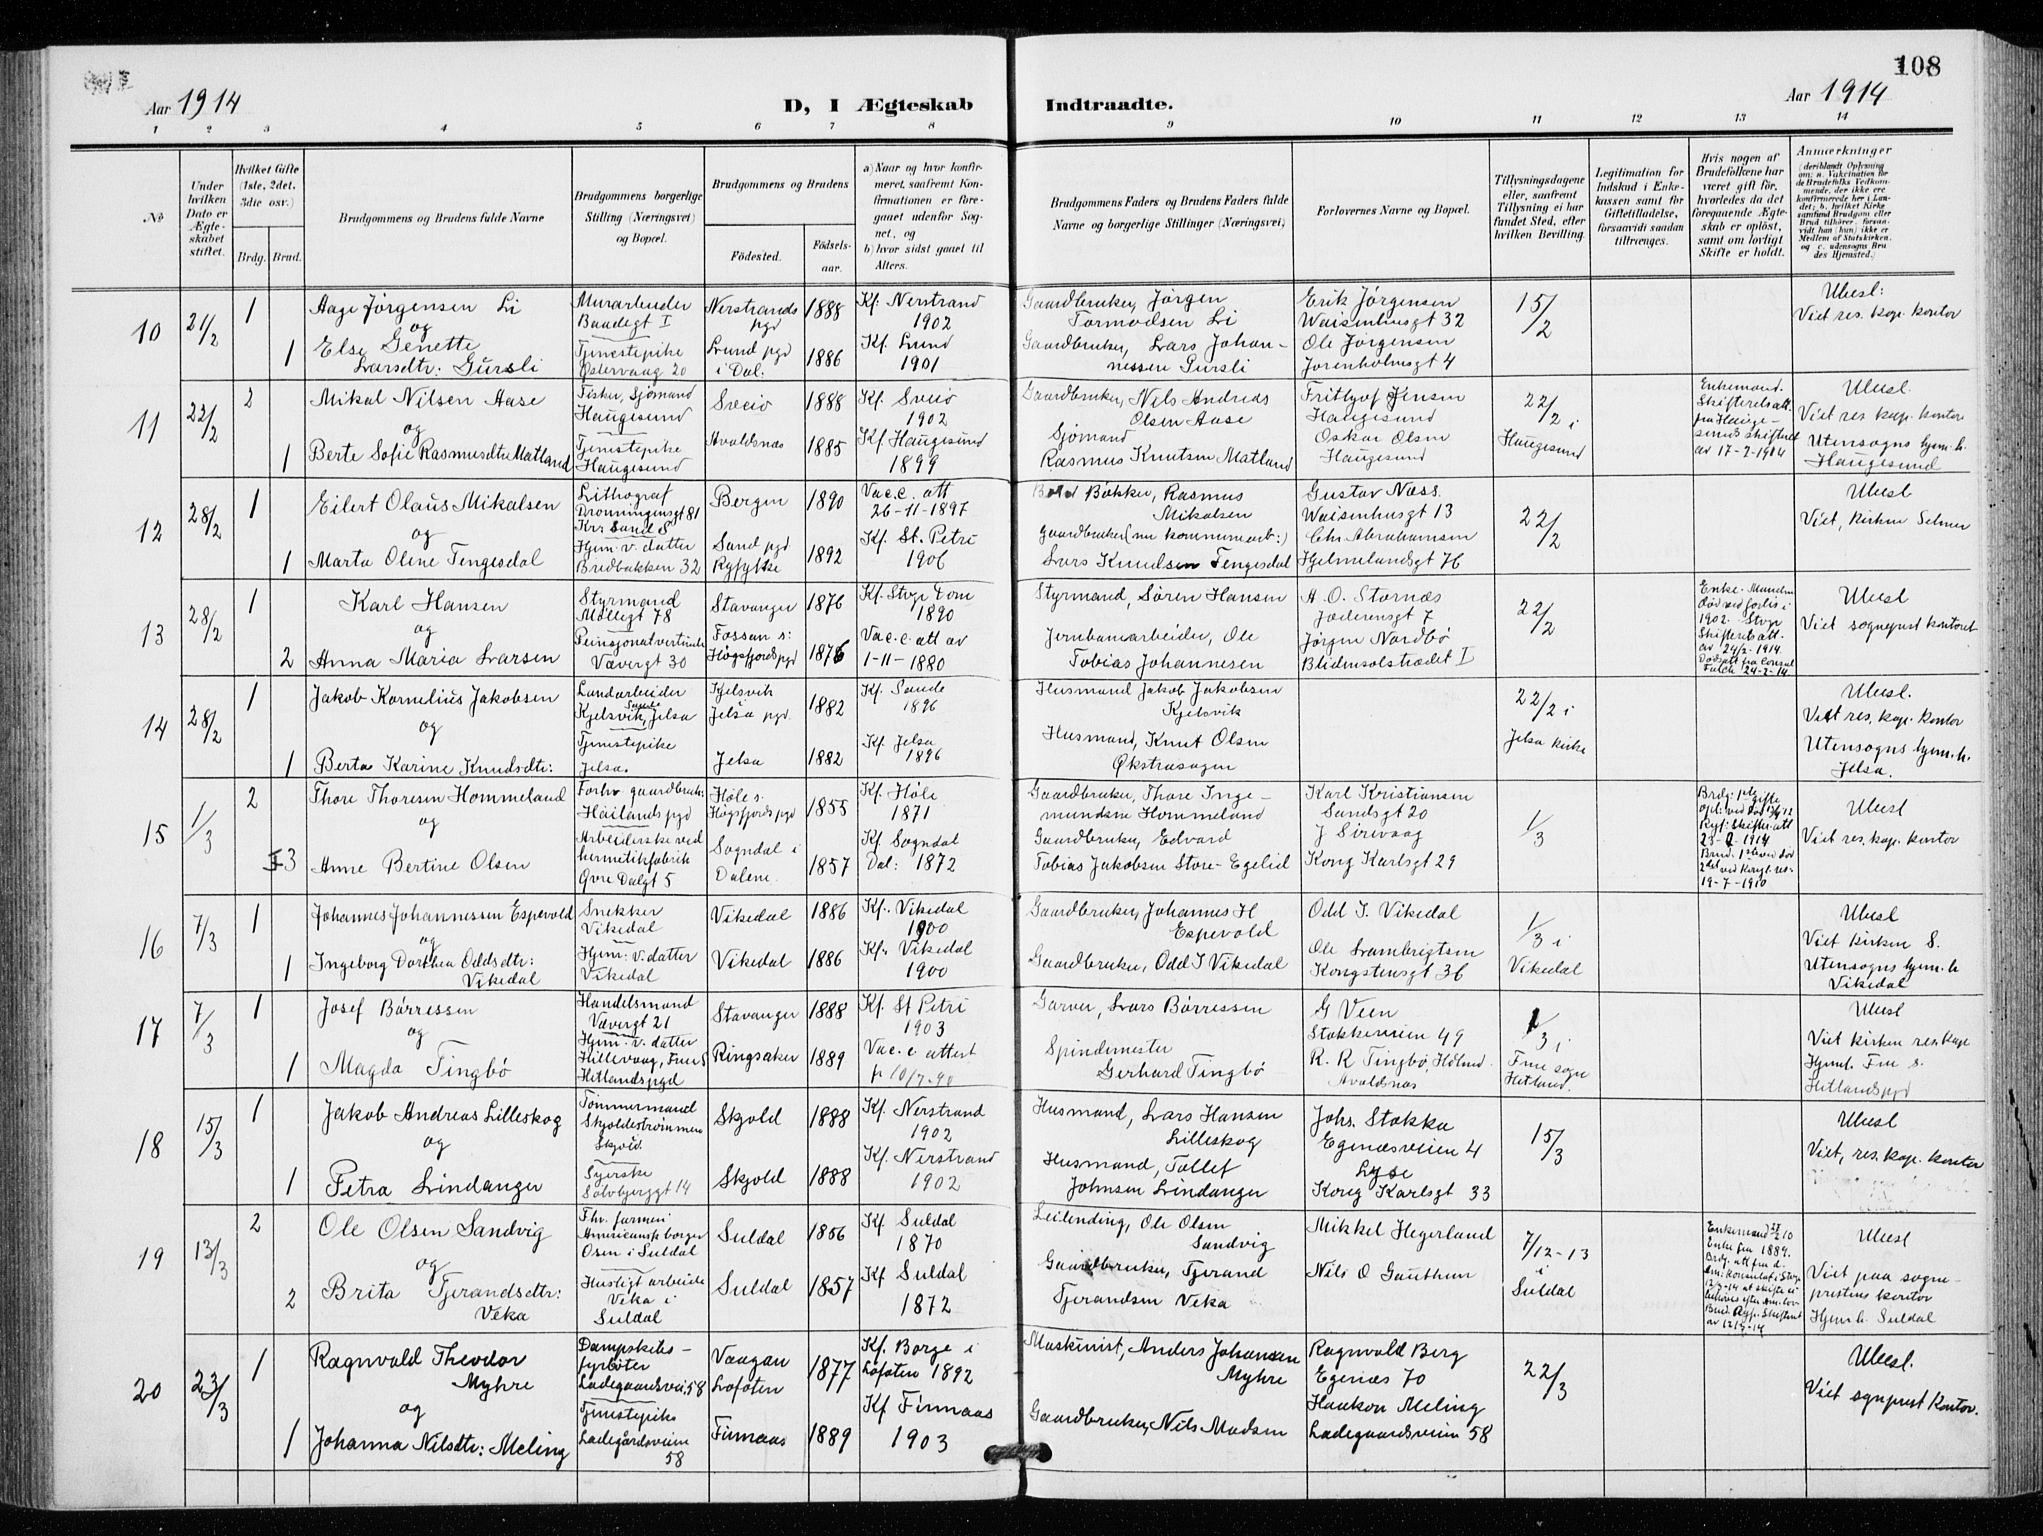 108
Aar 1914
D, I Ægteskab
Indtraadte.
Aar 1914
1 2 3 4 5 6 7 8 9 10 11 12 13 14
№
Under hvilken Dato er Ægteskabet stiftet.
Hvilket Gifte (1ste, 2det, 3die osv.)
Brdg. Brud.
Brudgommens og Brudens fulde Navne
Brudgommens borgerlige Stilling (Næringsvei) og Bopæl.
Brudgommens og Brudens
Fødested.
Fødselsaar.
a) Naar og hvor konfirmeret, saafremt Konfirmationen er foregaaet udenfor Sognet, og
b) hvor sidst gaaet til Alters.
Brudgommens Faders og Brudens Faders fulde Navne og borgerlige Stillinger (Næringsvei)
Forlovernes Navne og Bopæl.
Tillysningsdagene eller, saafremt Tillysning ei har fundet Sted, efter hvilken Bevilling.
Legitimation for Indskud i Enkekassen samt for Giftetilladelse, forsaavidt saadan tiltrænges.
Hvis nogen af Brudefolkene har været gift før, hvorledes da det foregaaende Ægteskab er opløst, samt om lovligt Skifte er holdt.
Anmærkninger
(deriblandt Oplysning om: a. Vakcination for de Brudefolks Vedkommende, der ikke ere konfirmerede her i Landet; b. hvilket Kirkesamfund Brudgom eller Brud tilhører, forsaavidt han (hun) ikke er Medlem af Statskirken, og c. udensogns Brudes Hjemsted.)
10 21/2 1 Aage Jørgensen Li Murarbeider Baadegt I Nerstrands pgd 1888 Kf. Nerstrand 1902 Gaardbruker, Jørgen Tormodsen Li Erik Jørgensen Waisenhusgt 32 15/2 Ubesl: Viet res. kap. kontor
og
1 Else Genette Larsdtr: Gursli Tjenestepike Østervaag 20 Lund pgd i Dal: 1886 Kf. Lund 1901 Gaardbruker, Lars Johannessen Gursli Ole Jørgensen Jorenholmsgt 4
11 22/2 2 Mikal Nilsen Aase Fisker, Sjømand Haugesund Sveio 1888 Kf. Sveio 1902 Gaardbruker, Nils Andreas Olsen Aase Fritjof Jensen Haugesund 22/2 i Haugesund Enkemand. Skifteretsatt. fra Haugesunds skifteret av 17-2-1914 Ubesl. Viet res. kap. kontor
og
1 Berte Sofie Rasmusdtr Matland Tjenestepike Haugesund Avaldsnæs 1885 Kf. Haugesund 1899 Sjømand Rasmus Knutsen Matland Oskar Olsen Haugesund Utensogns hjem. h. Haugesund
12 28/2 1 Eilert Olaus Mikalsen Lithograf Dronningensgt 81 Kr: Sand S Bergen 1890 Vac.c. att 26-11-1897 Bøkker, Rasmus Mikalsen Gustav Næss. Waisenhusgt 13 22/2 Ubesl Viet, kirken Selmer
og
1 Marta Oline Tengesdal Hjem. v. datter Bredbakken 32 Sand pgd Ryfylke 1892 Kf. St. Petri 1906 Gaardbruker (nu kommunearb:) Lars Knudsen Tengesdal Chr. Abrahamsen Hjelmelandsgt 76
13 28/2 1 Karl Hansen Styrmand Møllegt 78 Stavanger 1876 Kf. Stvgr Dom 1890 Styrmand, Søren Hansen A. O. Stornæs Jæderensgt 7 22/2 Ubesl Viet sogneprst kontoret
og
2 Anna Maria Larsen Pensjonatvertinde Vævergt 30 Fossan s: Høgsfjords pgd 1876 Vac.c. att av 1-11-1880 Jernbanearbeider, Ole Tobias Johannesen Jørgen Nordbø Blidensolstrædet I
14 28/2 1 Jakob Kornelius Jakobsen Landarbeider Kjelsvik, Sande Jelsa Kjelsvik Jelsa pgd. 1882 Kf. Sande 1896 Husmand Jakob Jakobsen Kjelsvik 22/2 i Jelsa kirke Ubesl. Viet res. kap. kontor
og
1 Berta Karine Knudsdtr: Tjenestepike Jelsa. Jelsa 1882 Kf. Jelsa 1896 Husmand, Knut Olsen Økstrasagen Utensogns hjem. h. Jelsa.
15 1/3 2 Thore Thoresen Hommeland Forhv gaardbruk: Hailands pgd Høle s. Høgsfjords pgd 1855 Kf. Høle 1871 Gaardbruker, Thore Ingemundsen Hommeland Karl Kristiansen Sandsgt 20 1/3 Ubesl Viet res. kap. kontor
og
3 Anne Bertine Olsen Arbeiderske ved hermetikfabrik Øvre Dalgt 5 Sogndal i Dalene. 1857 Kf. Sogndal Dal: 1872 Gaardbruker, Edvard Tobias Jakobsen Store-Egelid J Sirevaag Kong Karlsgt 29
16 7/3 1 Johannes Johannessen Espevold Snekker Vikedal Vikedal 1886 Kf. Vikedal 1900 Gaardbruker, Johannes H Espevold Odd I. Vikedal 1/3 i Vikedal Ubesl Viet kirken S.
og
1 Ingeborg Dorthea Oddsdtr: Vikedal Hjem: v. datter Vikedal Vikedal 1886 Kf. Vikedal 1900 Gaardbruker, Odd I Vikedal Ole Lambrigtsen Kongstensgt 36 Utensogns hjem. h Vikedal
17 7/3 1 Josef Børressen Handelsmand Vævergt 21 Stavanger 1888 Kf. St Petri 1903 Garver, Lars Børressen G Veen Stokkeveien 49 1/3 i Frue sogn Hetland. Ubesl Viet kirken res. kap
og
1 Magda Tingbø Hjem. v. datter Hillevaag, Frue S Hetlands pgd Ringsaker 1889 Vac. c attest f 10/7-90 Spindemester Gerhard Tingbø R. R Tingbø, Avaldsnæs Hjemh. Frue s. Hetlands pgd
18 15/3 1 Jakob Andreas Lilleskog Tømmermand Skjoldestrømmen Skjold. Skjold 1888 Kf. Nerstrand 1902 Husmand, Lars Hansen Lilleskog Johs. Stokka Egenæsveien 4 15/3 Ubesl Viet, res. kap. kontor
og
1 Petra Lindanger Syerske Sølvberggt 14 Skjold 1888 Kf. Nerstrand 1902 Husmand, Tollef Johnsen Lindanger Lyse Kong Karlsgt 33
19 13/3 2 Ole Olsen Sandvig Fhv. farmer Amerikansk borger Osen i Suldal Suldal 1856 Kf Suldal 1870 Leilending, Ole Olsen Sandvig Mikkel Hegerland 7/12-13 i Suldal Ubesl Viet paa sogneprestens kontor
og
2 Brita Tjerandsdtr: Veka Husligt arbeide Veka i Suldal Suldal 1857 Kf Suldal 1872 Gaardbruker, Tjerand Tjerandsen Veka Nils O Gauthun Hjemh. Suldal
20 23/3 1 Ragnvald Theodor Myhre Dampskibsfyrbøter Ladegaardsvei 58 Vaagan Lofoten 1877 Kf. Borge i Lofoten 1892 Maskinist, Anders Johansen Myhre Ragnvald Berg Egenæs 70 22/3 Ubesl. Viet sognprest kontor.
og
1 Johanna Nilsdtr: Meling Tjenestepike Ladegårdsveien 58 Finnaas 1889 Kf Finnaas 1903 Gaardbruker, Nils Madsen Haakon Meling Ladegaardsveien 58